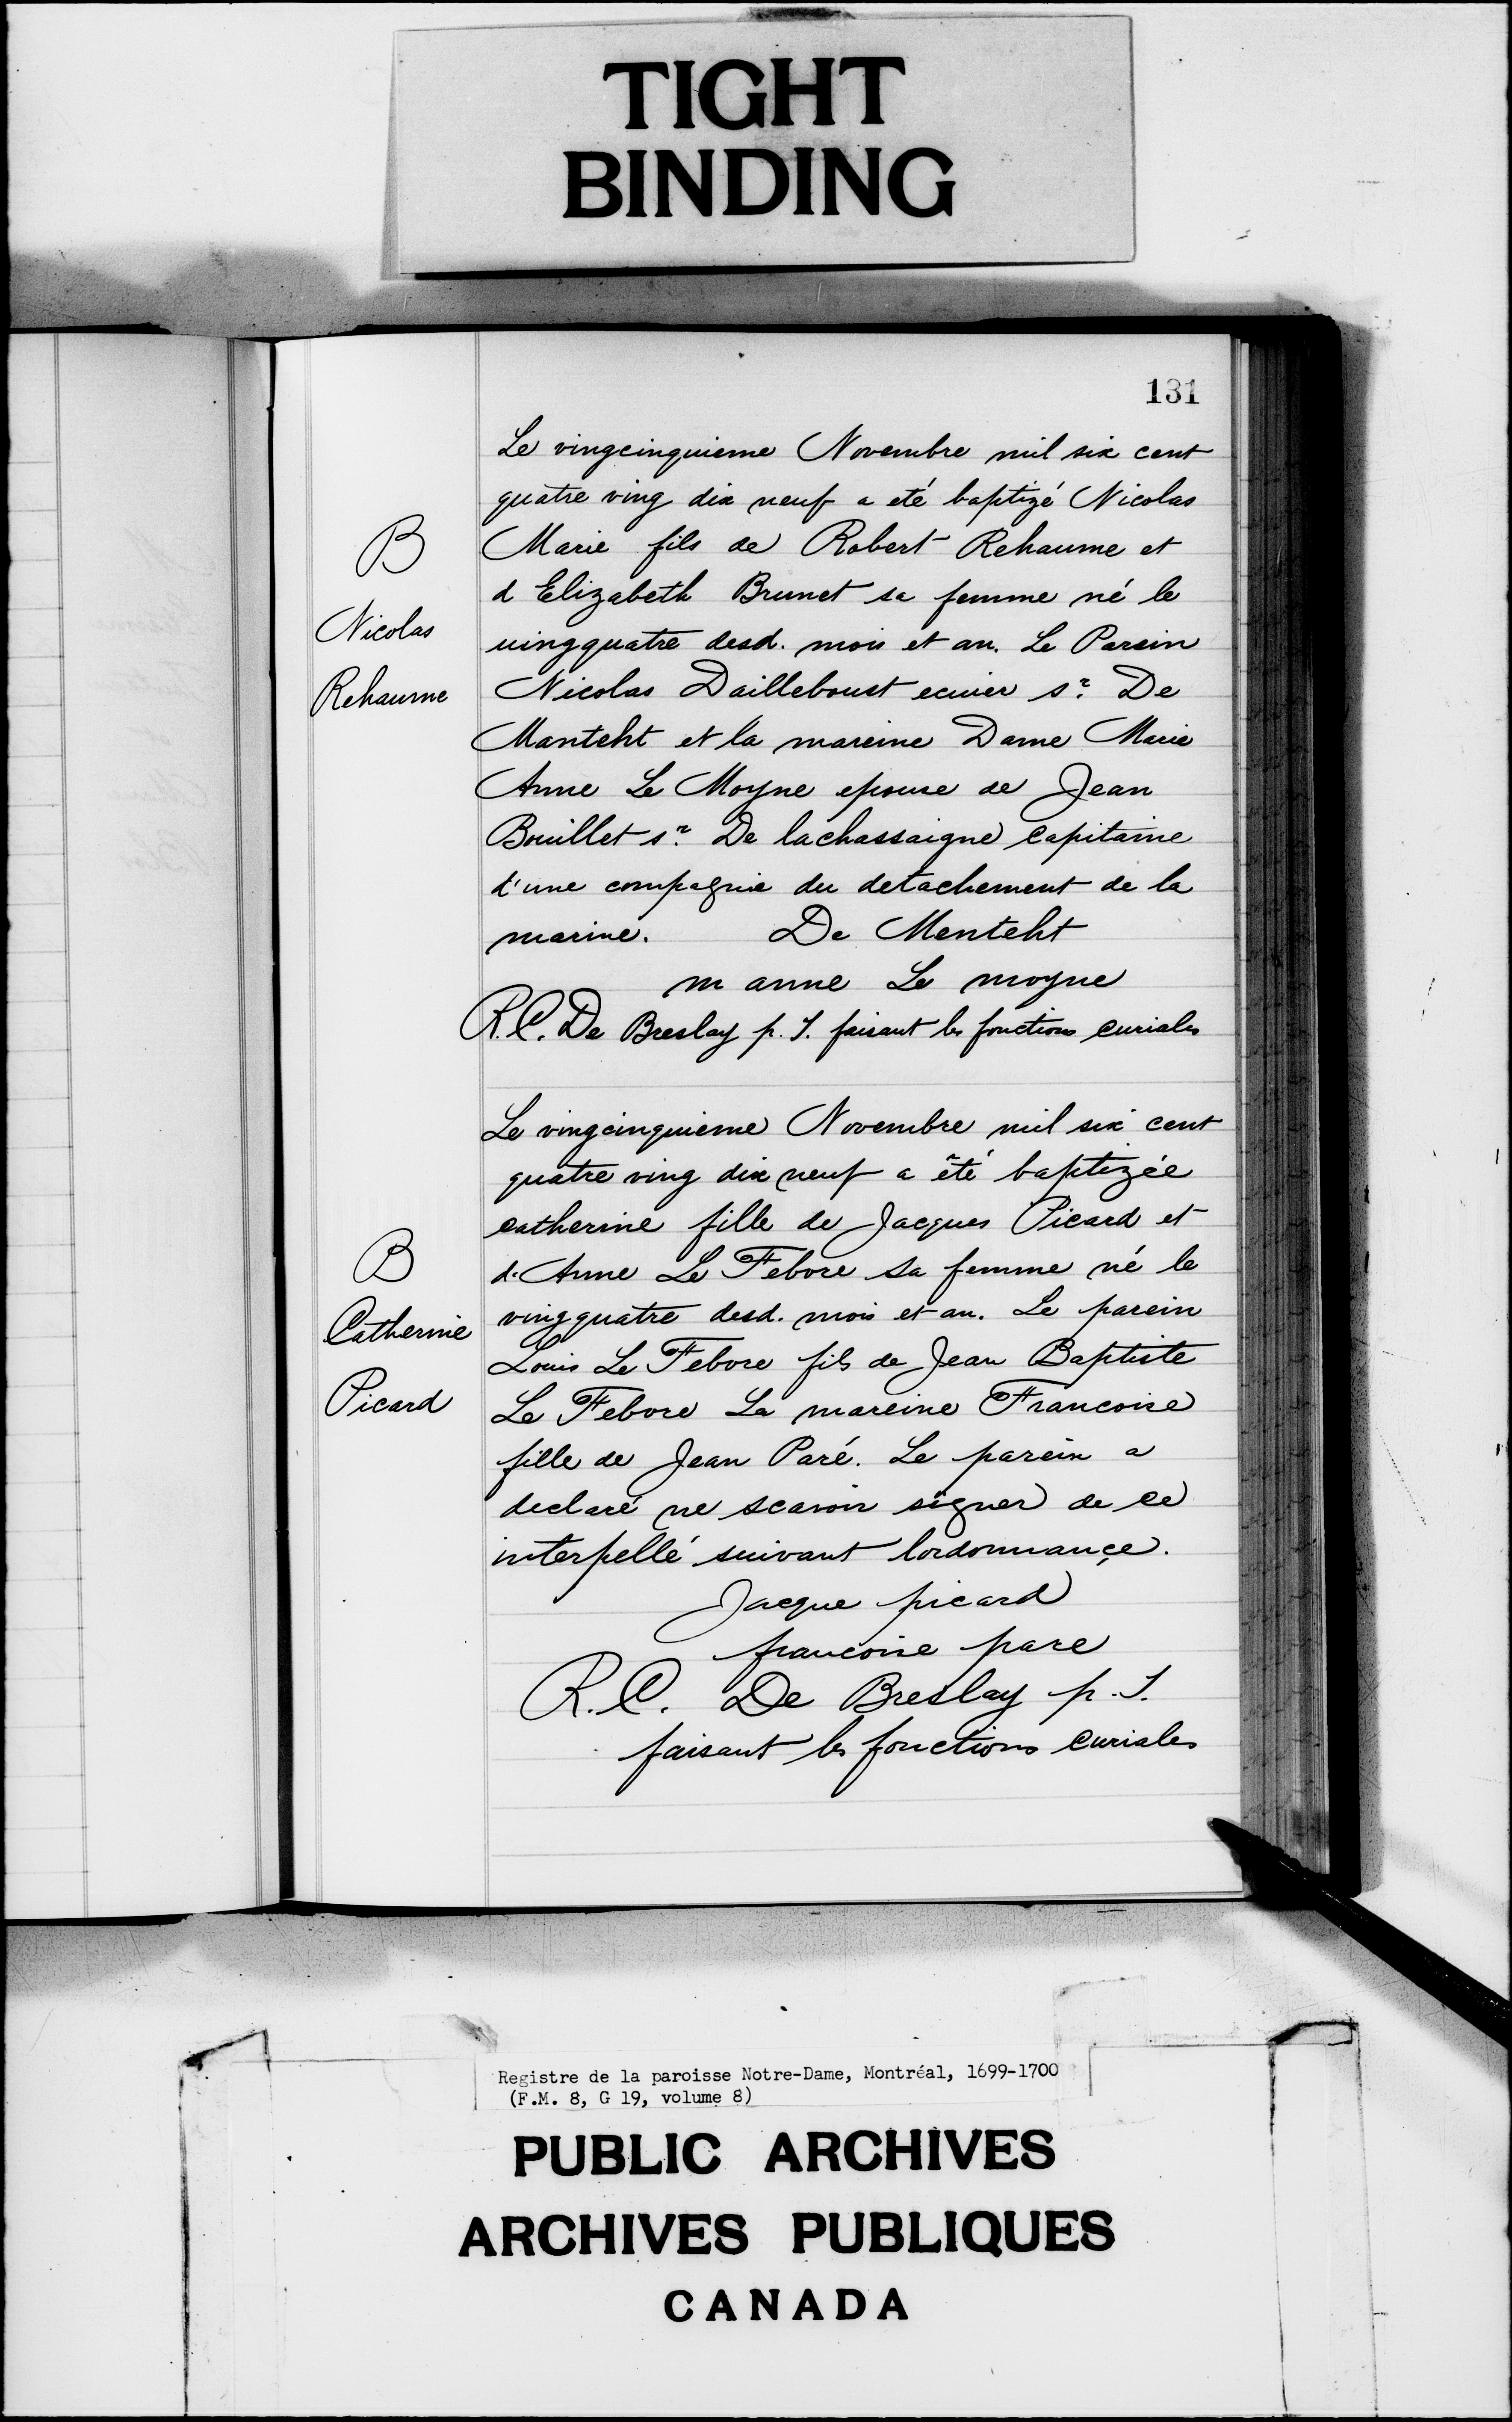 TIGHT
BINDING
131
Le vingcinquieme Novembre mil six cent
quatre ving dix neuf a eté baptizé Nicolas
B
Marie fils de Robert Rehaume et
d Elizabeth Brunet sa femme né le
Nicolas
uingquatre desd. mois et an. Le Parein
Rehaume
Nicolas Dailleboust ecuier sr. De
Manteht et la mareine Dame Marie
Anne Le Moyne epouse de Jean
Bouillet sr. De lachassaigne capitaine
d'une compagnie du detachement de la
marine. De Menteht
m anne Le moyne
R.C. De Breslay p. S. faisant les fonctions curiales
Le vingcinquieme Novembre mil six cent
quatre ving dix neuf a eté baptizée
catherine fille de Jacques Picard et
B
d. Anne Le Febvre sa femme né le
Catherine
vingquatre desd. mois et an. Le parein
Louis Le Febvre fils de Jean Baptiste
Picard
Le Febvre La mareine Francoise
fille de Jean Paré. Le parein a
declaré ne scavoir signer de ce
interpellé suivant lordonnançe.
Jacque picard
francoise pare
R.C. De Breslay p. S.
faisant les fonctions curiales
Registre de la paroisse Notre-Dame, Montréal, 1699-1700
(F.M. 8, G 19, volume 8)
PUBLIC ARCHIVES
ARCHIVES PUBLIQUES
CANADA